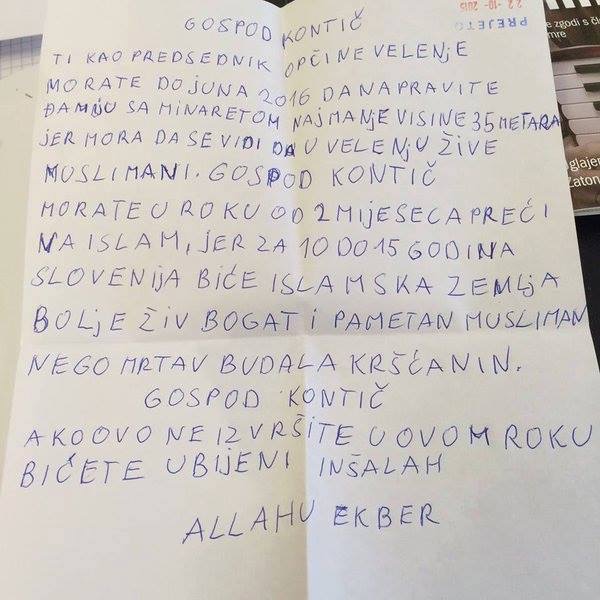 GOSPOD KONTIČ
TI KAO PREDSEDNIK OPČINE VELENJE
MORATE DO JUNA 2016 DA NAPRAVITE
ĐAMIJU SA MINARETOM NAJMANJE VISINE 35 METARA
JER MORA DA SE VIDI DA U VELENJU ŽIVE
MUSLIMANI. GOSPOD KONTIČ
MORATE U ROKU OD 2 MIJESECA PREĆI
NA ISLAM, JER ZA 10 DO 15 GODINA
SLOVENIJA BIĆE ISLAMSKA ZEMLJA
BOLJE ŽIV BOGAT I PAMETAN MUSLIMAN
NEGO MRTAV BUDALA KRŠĆANIN.
GOSPOD KONTIČ
AKO OVO NE IZVRŠITE U OVOM ROKU
BIĆETE UBIJENI INŠALAH
ALLAHU EKBER
PREJETO
22 -10- 2015
e zgodi s čl
mre
oglajen
Zaton